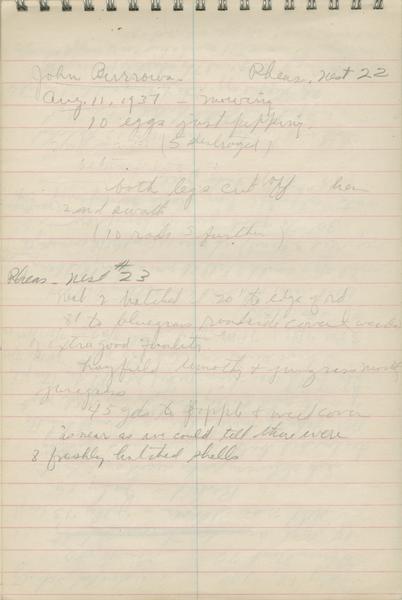 John Burrows. Pheas. Nest 22
Aug. 11, 1937 - mowing
10 eggs just pipping.
(5 destroyed)
both legs cut off hen
2nd swath
(10 rods further)
Pheas - nest #23
Nest 2 hatched 20' to edge of rd
81 to bluegrass roadside cover & weeds
extra good quality
hayfield timothy & junegrass mostly
junegrass
45 yds to & weed cover
as near as we could tell there were
8 freshly hatched shells